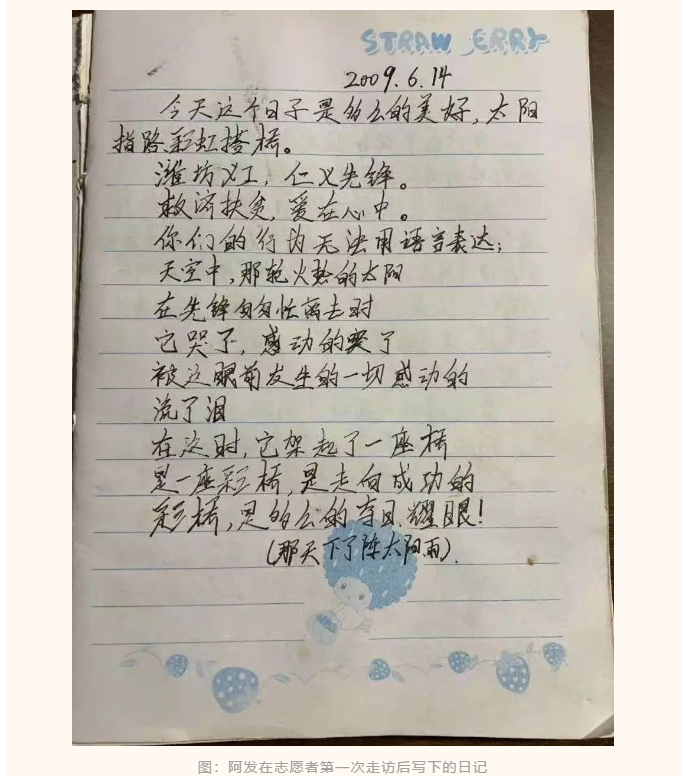 STRAW ERRY
2009.6.14
今天这个日子是多么的美好，太阳
指路彩虹搭桥。
潍坊义工，仁义先锋。
救济扶贫，爱在心中。
你们的行为无法用语言表达；
天空中，那轮火热的太阳
在先锋匆匆忙离去时
它哭了，感动的哭了
被这眼前发生的一切感动的
流了泪
在这时，它架起了一座桥
是一座彩桥，是走向成功的
彩桥，是多么的夺目、耀眼！
（那天下了阵太阳雨）.
图：阿发在志愿者第一次走访后写下的日记